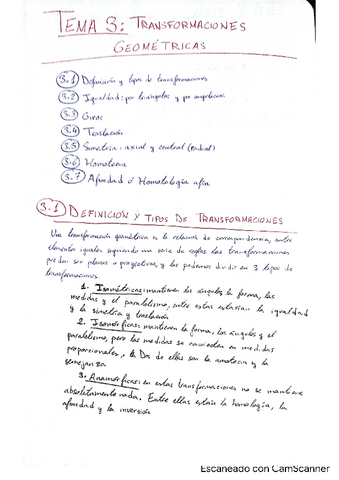 TEMA 3: TRANSFORMACIONES
GEOMÉTRICAS
3.1 Definición y tipos de transformaciones
3.2 Igualdad: por triángulos y por
3.3 Giros
3.4 Traslación
3.5 Simetría: axial y central (radial)
3.6 Homotecia
3.7 Afinidad ó Homología afín
3.1 DEFINICIÓN Y TIPOS DE TRANSFORMACIONES
Una transformación geométrica es la relación de correspondencia, entre
elementos iguales siguiendo una serie de reglas las transformaciones
puedan ser planas o proyectivas, y las podemos dividir en 3 tipos de
transformaciones.
1. Isométricas: mantienen los ángulos la forma, las
medidas y el paralelismo, entre estas estarían la igualdad
y la simetría y traslación
2. Isomórficas: mantienen la forma, los ángulos y el
paralelismo, pero las medidas se convierten en medidas
proporcionales, Dos de ellas son la y la
semejanza
3. Anamórficas: en estas transformaciones no se mantiene
absolutamente nada. Entre ellas están la homología, la
afinidad y la inversión
Escaneado con CamScanner